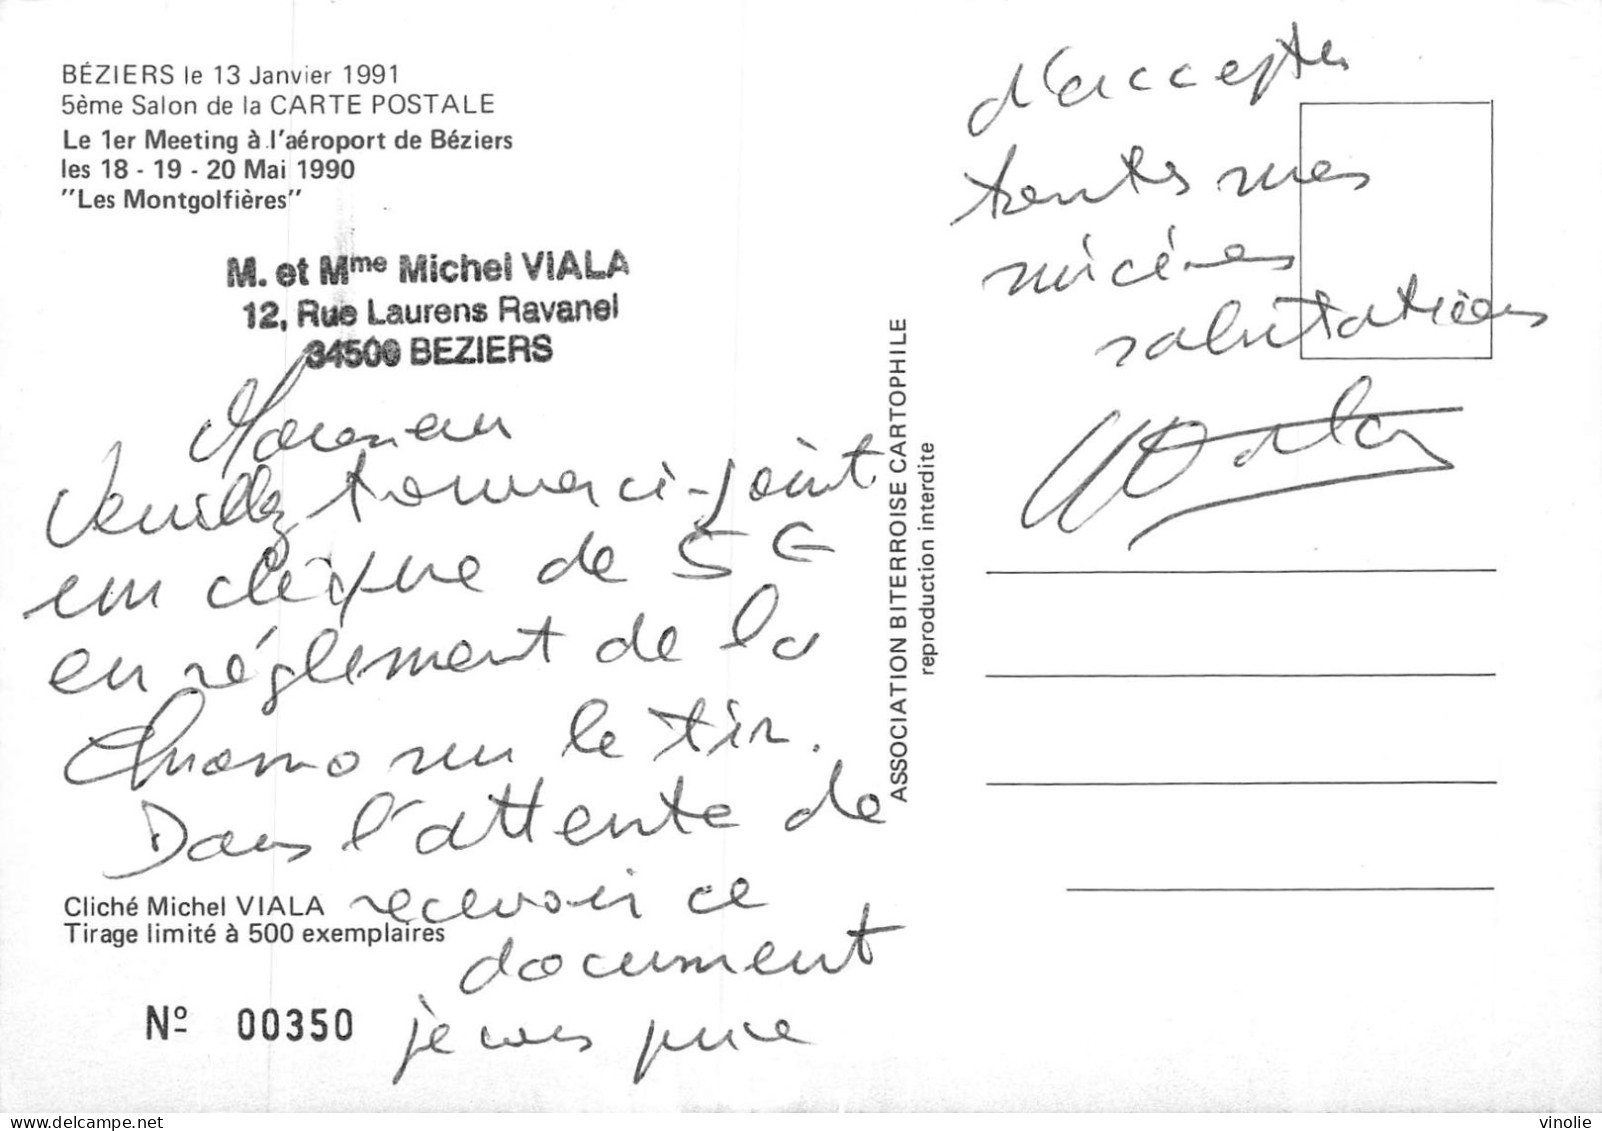 BÉZIERS le 13 Janvier 1991
5ème Salon de la CARTE POSTALE
Le 1er Meeting à l'aéroport de Béziers
les 18 - 19 - 20 Mai 1990
"Les Montgolfières"
M. et Mme Michel VIALA
12, Rue Laurens Ravanel
34500 BEZIERS
Monsieur
Veuillez trouver ci-joint
un chèque de 5 €
en réglement de la
sur le tir.
Dans l'attente de
recevoir ce
document
je vous prie
Cliché Michel VIALA
Tirage limité à 500 exemplaires
Nº 00350
ASSOCIATION BITERROISE CARTOPHILE
reproduction interdite
d'accepter
toutes mes
sincères
salutations
delcampe.net
vinolie